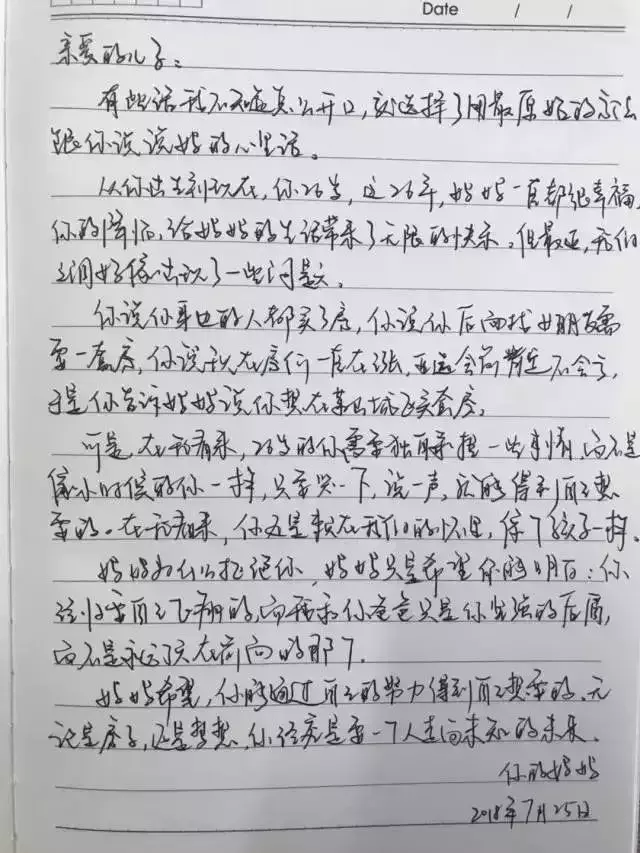 Date / /
亲爱的儿子:
有些话我不知道怎么开口,刻选择了用最原始的方法
跟你说说妈的心里话。
从你出生到现在,你26岁,这26年,妈妈一直都很幸福,
你的降临,给妈妈的生活带来了无限的快乐。但最近,我们
之间好像出现了一些问题。
你说你身边的人都买了房,你说你后面找女朋友需
要一套房,你说现在房价一直在涨,亚运会前肯定不会亏,
于是你告诉妈妈说你想在萧山城区买套房。
可是,在我看来,26岁的你需要独自承担一些事情,而不是
像小时候的你一样,只要哭一下,说一声,就能得到自己想
要的。在我看来,你还是躲在我们的怀里,像个孩子一样。
妈妈为什么拒绝你,妈妈只是希望你能明白:你
终归要自己飞翔的,而我和你爸爸只是你坚强的后盾,
而不是永远顶在前面的那个。
妈妈希望,你能通过自己的努力得到自己想要的,无
论是房子,还是梦想,你终究是要一个人走向未知的未来。
你的妈妈
2018年7月25日